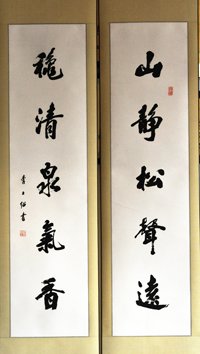 山靜松聲遠
秋清泉氣香